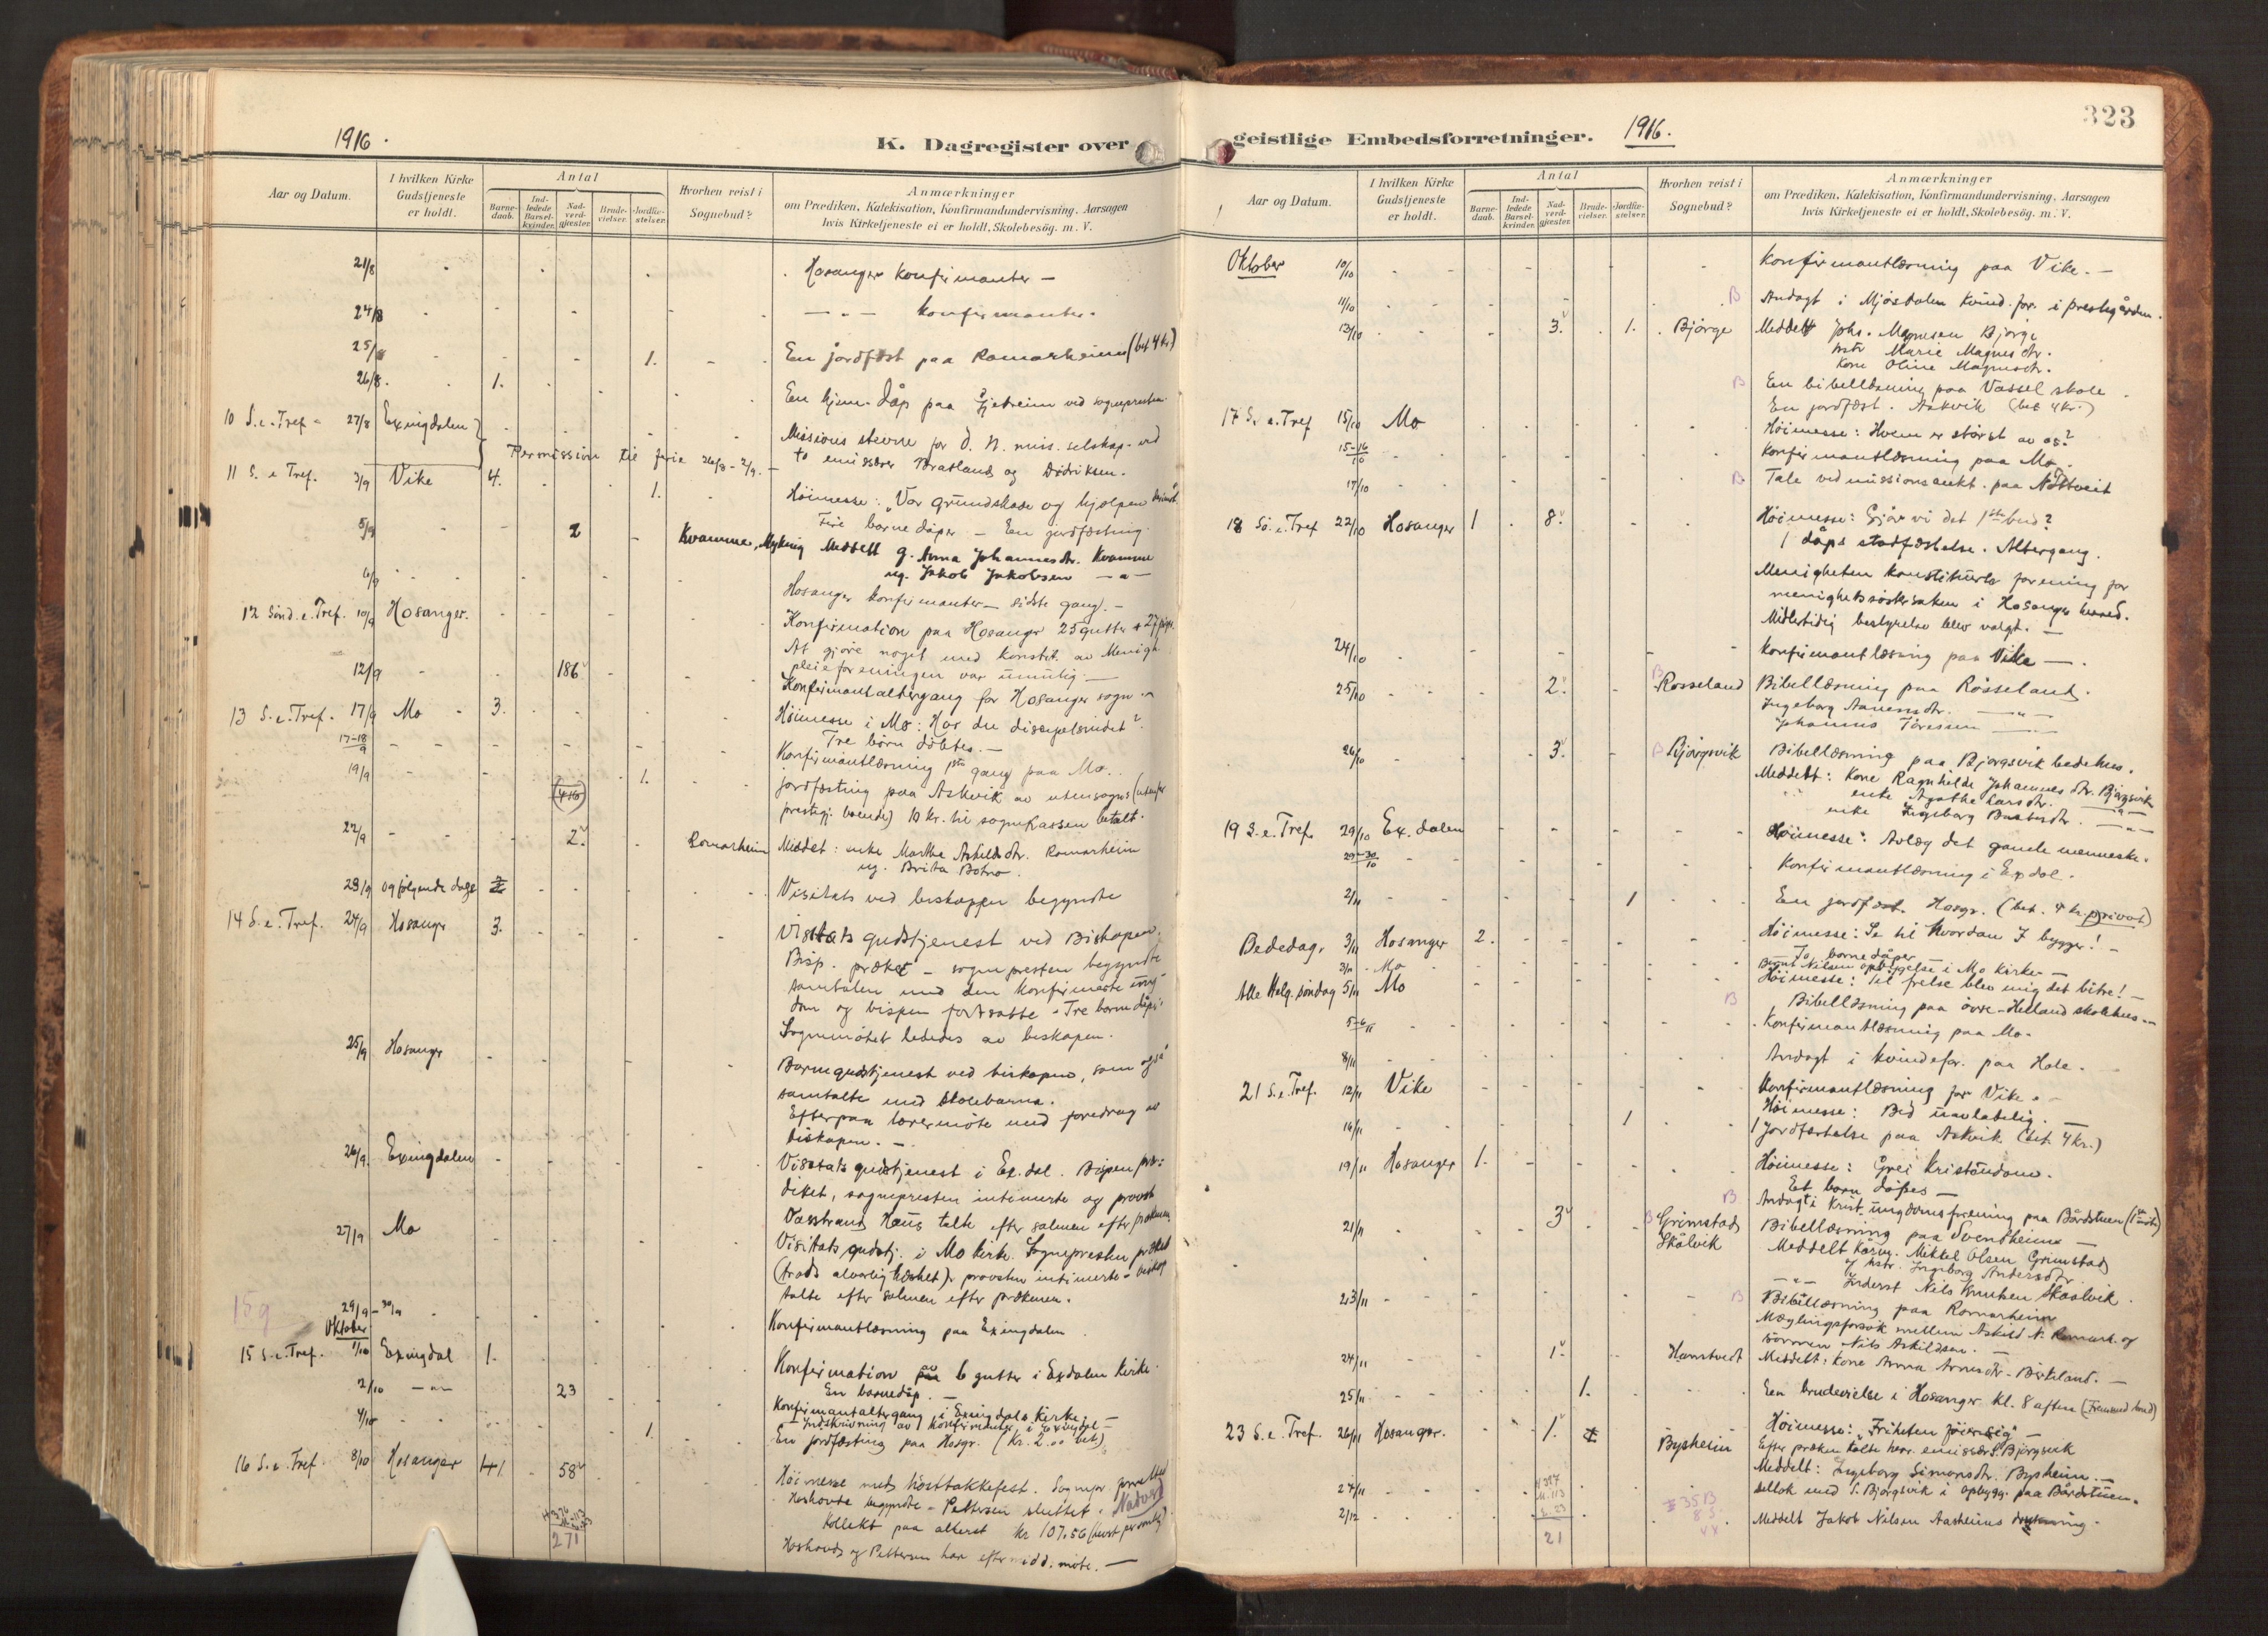 1916.
K. Dagregister over
Aar og Datum.
I hvilken Kirke Gudstjeneste er holdt.
Antal
Barnedaab.
Indledede Barselkvinder.
Nadverdgjester.
Brudevielser.
Jordfæstelser.
Hvorhen reist i Sognebud?
Anmærkninger
om Prædiken, Katekisation, Konfirmandundervisning, Aarsagen
hvis Kirketjeneste ei er holdt, Skolebesög. m. V.
21/8 Hosanger Konfirmanter —
24/8 — " — Konfirmanter.
25/8 1. En jordfæst paa Romarheim (bet 4 kr)
26/8. 1. En hjem. Dåp paa Fjetreim ved sognepresten.
10 S. e. Tref. 27/8 Exingdalen Missions stevne for d. N. mis. selskap. ved
Permission til ferie 26/8 - 2/9. to emissærer Bratland og Didriksen.
11 S. e Tref. 3/9 Vike 4. 1. Höimesse: "Vor grundskade og hjælpen derimot
Fire barnedåper. — En jordfæsting.
5/9 2 Kvamme, Myking Meddelt g. Anna Johannesdr. Kvamme
ug. Jakob Jakobsen — " —
6/9 Hosanger konfirmanter — sidste gang. —
12 Sönd. e. Tref. 10/9 Hosanger. Konfirmation paa Hosanger 25 gutter + 27 piger.
At gjöre noget med konstit. av Menigh.
pleieforeningen var umulig. —
12/9 186 Konfirmantaltergang for Hosanger sogn
13 S. e. Tref. 17/9 Mo 3. Höimesse i Mo: Har du discipelsindet?
Tre börn döbtes. —
17-18/9 Konfirmantlæsning 1ste gang paa Mo.
19/9 1. jordfæsting paa Askvik av utensogns (utenfor
prestegj. boende) 10 kr. til sognekassen betalt.
22/9 2. Romarheim Meddelt: enke Marthe Askildsdr. Romarheim
ug. Brita Botna.
23/9 og fölgende dage Visitats ved biskoppen begyndte
14 S. e. Tref. 24/9 Hosanger 3. Visitats gudstjenest ved Biskopen.
Bisp. præket — sognepresten begyndte
samtalen med den konfirmerte ung-
dom og bispen fortsatte. Tre barnedåp.
Sognemötet lededes av biskopen.
25/9 Hosanger Barnegudstjenest ved biskopen, som også
samtalte med skolebarna.
Efterpaa lærermöte med foredrag av
biskopen. —
26/9. Exingdalen Visitats gudstjenest i Ex.dal. Bispen præ-
diket, sognepresten intimerte og provst
Vasstrand Haus talte efter salmen efter prækenen
27/9 Mo Visitats gudstj. i Mo kirke. Sognepresten præket
(trods alvorlig hæshet), provsten intimerte - biskop
talte efter salmen efter prækenen.
29/9 - 30/9 Konfirmantlæsning paa Exingdalen
Oktober
15 S. e. Tref. 1/10 Exingdal 1. Konfirmation av 6 gutter i Exdalen Kirke.
En barnedåp. —
2/10 — " — 23 Konfirmantaltergang i Exingdalen Kirke. —
Indskrivning av konfirmanter i Exingdal —
4/10 1. En jordfæsting paa Hosgr. (Kr. 2.00 bet)
16 S. e. Tref 8/10 Hosanger 58 Höimesse med hösttakkefest. Sognepr. forrettet
Hashovde begyndte - Pettersen sluttet. Nadverd
Kollekt paa alteret kr 107.56
271 Hoshovde og Pettersen har eftermidd. möte. —
323
geistlige Embedsforretninger. 1916.
Aar og Datum.
I hvilken Kirke Gudstjeneste er holdt.
Antal
Barnedaab.
Indledede Barselkvinder.
Nadverdgjester.
Brudevielser.
Jordfæstelser.
Hvorhen reist i Sognebud?
Anmærkninger
om Prædiken, Katekisation, Konfirmandundervisning, Aarsagen
hvis Kirketjeneste ei er holdt, Skolebesög. m. V.
Oktober 10/10 Konfirmantlæsning paa Vike. —
11/10 B Andagt i Mjösdalen Kvind. for. i prestegården.
13/10 3. 1. Bjørge Meddelt Johs. Magnesen Bjørge
hstr Marie Magnesdr.
Kone Oline Magnesdr.
B En bibellæsning paa Vassel skole.
En jordfæst. Askvik (bet 4 kr.)
17 S. e. Tref 15/10 Mo Höimesse: Hvem er störst av os?
15-16/10 Konfirmantlæsning paa Mo.
17/10 B Tale ved missionsaukt. paa Nöttveit
18 Sö. e. Tref 22/10 Hosanger 1 8. Höimesse: Gjör vi det 1ste bud?
1 dåps stadfæstelse. Altergang.
Menigheten konstituerte forening for
menighetssöstersaken i Hosanger herred.
Midlertidig bestyrelse blev valgt. —
24/10 Konfirmantlæsning paa Vike —
25/10 2. B Rosseland Bibellæsning paa Rösseland.
Ingeborg Aanensdr. — " —
Johannes Toresen — —
26/10 3. B Bjørgsvik Bibellæsning paa Bjørgsvik bedehus.
Meddelt: Kone Ragnhilde Johannesdr. Bjørgsvik
enke Agathe Larsdr. — " —
enke Ingeborg — " —
19 S. e. Tref. 29/10 Ex. dalen Höimesse: Avlæg det gamle menneske.
29-30/10 Konfirmantlæsning i Exdal.
2/11 1 En jordfæst. Hosgr. (bet. 4 kr. privat)
Bededag. 3/11 Hosanger 2. Höimesse: Se til hvordan I bygger! —
To barnedåper
3/11 Mo Bernt Nilsen opbyggelse i Mo kirke —
Alle Helg. söndag 5/11 Mo Höimesse: Til frelse blev mig det bitre! —
B Bibellæsning paa övre-Helland skolehus. —
5-6/11 Konfirmantlæsning paa Mo.
8/11 Andagt i kvindefor. paa Hole.
21 S. e. Tref. 12/11 Vike Konfirmantlæsning for Vike.
Höimesse: Bed uavladelig. —
14/11 1 1 Jordfæstelse paa Askvik (bet. 4 kr.)
19/11 Hosanger 1. Höimesse: Grei kristendom.
Et barn döbes —
B Andagt i Krist. ungdomsforening paa Bårdstuen (1ste möte)
21/11 3 B Grimstad Bibellæsning paa Svendheim —
Skålvik Meddelt Kårm. Mikkel Olsen Grimstad
og hstr. Ingeborg Andersdr.
— " — Inderst Nils Knutsen Skaalvik.
23/11 B Bibellæsning paa Romarheim
Mæglingsforsök mellem Askild N. Romarh. og
sönnen Nils Askildsen. —
24/11 1. Hamtvedt Meddelt: kone Anna Arnesdr. Birkeland. —
25/11 1. En brudevielse i Hosanger kl. 8 aften
23 S. e. Tref. 26/11 Hosanger. 1. Bysheim Höimesse: "Friheten för sig" —
Efter præken talte herr emissær S. Bjørgsvik
Meddelt: Ingeborg Simonsdr. Bysheim. —
27/11 deltok med S. Bjørgsvik i opbygg. paa Bårdstuen.
2/12 Meddelt Jakob Nilsen Aasheim
21